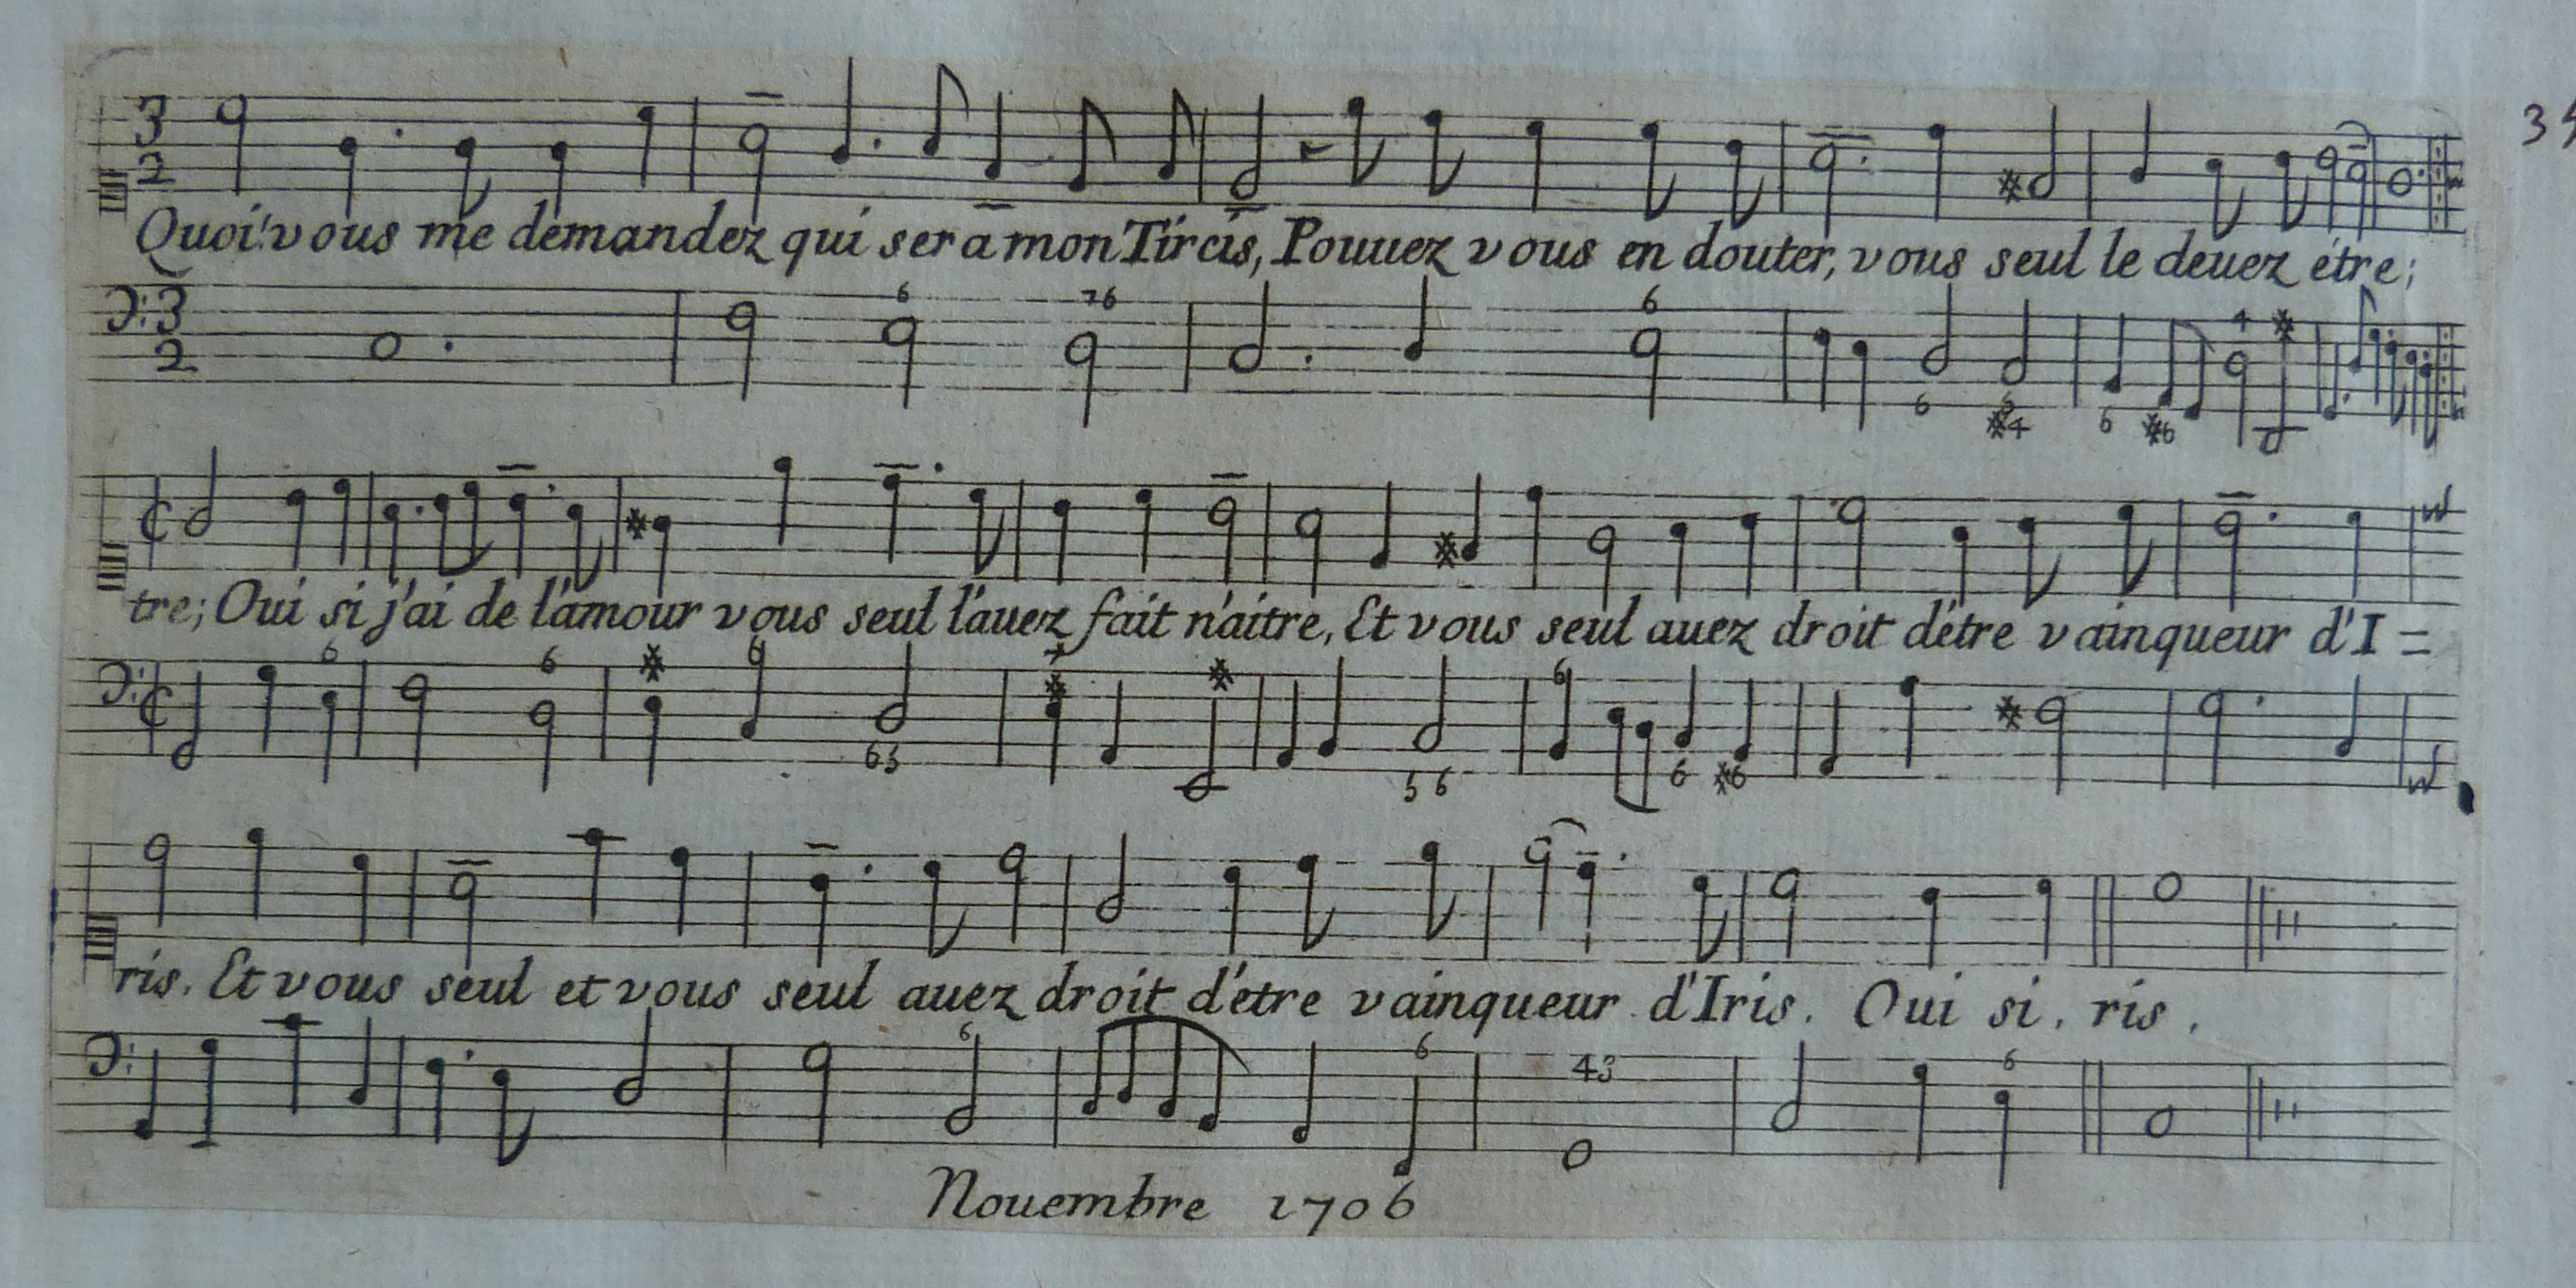 34
3
2
Quoi! vous me demandez qui sera mon Tircis, Pouuez vous en douter, vous seul le deuez étre;
6 76 6
3
2
4
6 6 6 6
4
tre; Oui si j'ai de l'amour vous seul l'auez fait n'aitre, Et vous seul auez droit d'étre vainqueur d'I =
6 6 6 7 6
65 56 6 6
ris. Et vous seul et vous seul auez droit d'étre vainqueur d'Iris. Oui si. ris.
6 6 43 6
Nouembre 1706